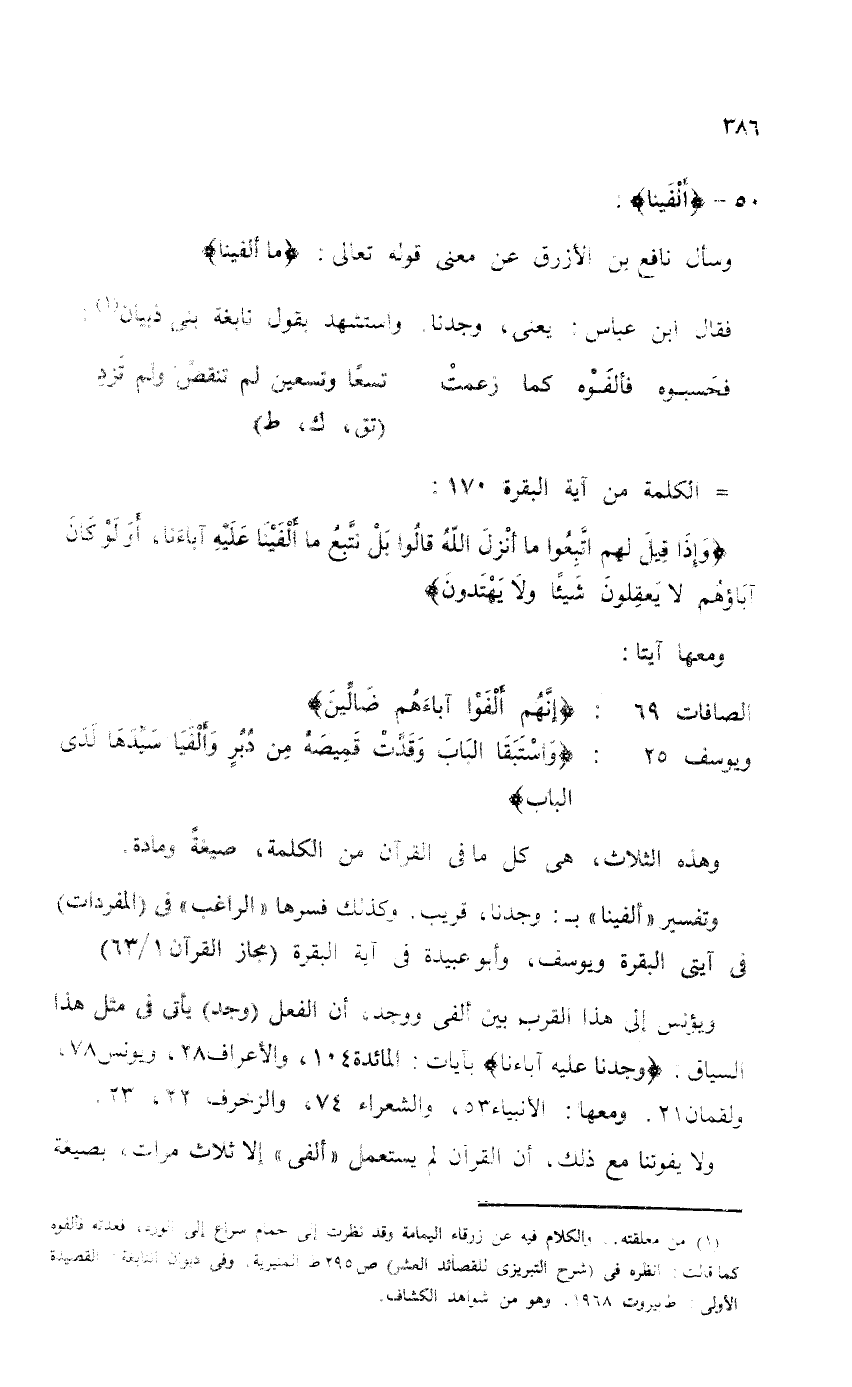 ٣٨٦
٥٠ – ﴿أَلْفَينا﴾ :
وسأل نافع بن الأزرق عن معنى قوله تعالى : ﴿ما ألفينا﴾
فقال ابن عباس : يعنى، وجدنا. واستشهد بقول نابغة بنى ذبيان(١) :
فحَسبوه فألفَوْه كما زعمتْ تسعًا وتسعين لم تنقصْ ولم تَزدِ
(تق، ك، ط)
= الكلمة من آية البقرة ١٧٠ :
﴿وَإِذَا قِيلَ لهم اتَّبِعُوا ما أنْزلَ اللّهُ قالُوا بَلْ نتَّبِعُ ما أَلْفَيْنَا عَلَيْهِ آباءَنا، أَوَلَوْ كَانَ
آبَاؤهُم لا يَعقِلونَ شَيئًا ولَا يَهْتَدونَ﴾
ومعها آيتا :
الصافات ٦٩ : ﴿إنَّهُم أَلْفَوْا آباءَهُم ضَالِّينَ﴾
ويوسف ٢٥ : ﴿وَاسْتَبَقَا البَابَ وَقَدَّتْ قَمِيصَهُ مِن دُبُرٍ وَأَلْفَيَا سَيِّدَهَا لَدَى
الباب﴾
وهذه الثلاث، هى كل ما فى القرآن من الكلمة، صيغةً ومادة.
وتفسير «ألفينا» بـ : وجدنا، قريب. وكذلك فسرها «الراغب» فى (المفردات)
فى آيتى البقرة ويوسف، وأبو عبيدة فى آية البقرة (مجاز القرآن ٦٣/١)
ويؤنس إلى هذا القرب بين ألفى ووجد، أن الفعل (وجد) يأتى فى مثل هذا
السياق : ﴿وجدنا عليه آباءنا﴾ بآيات : المائدة١٠٤، والأعراف٢٨، ويونس٧٨،
ولقمان٢١. ومعها : الأنبياء٥٣، والشعراء ٧٤، والزخرف ٢٢، ٢٣.
ولا يفوتنا مع ذلك، أن القرآن لم يستعمل «ألفى» إلا ثلاث مرات، بصيغة
(١) من معلقته.. والكلام فيه عن زرقاء اليمامة وقد نظرت إلى حمام سراع إلى الورد، فعدته فألفوه
كما قالت : انظره فى (شرح التبريزى للقصائد العشر) ص٢٩٥ ط المنيرية. وفى ديوان النابغة : القصيدة
الأولى : ط بيروت ١٩٦٨. وهو من شواهد الكشاف.